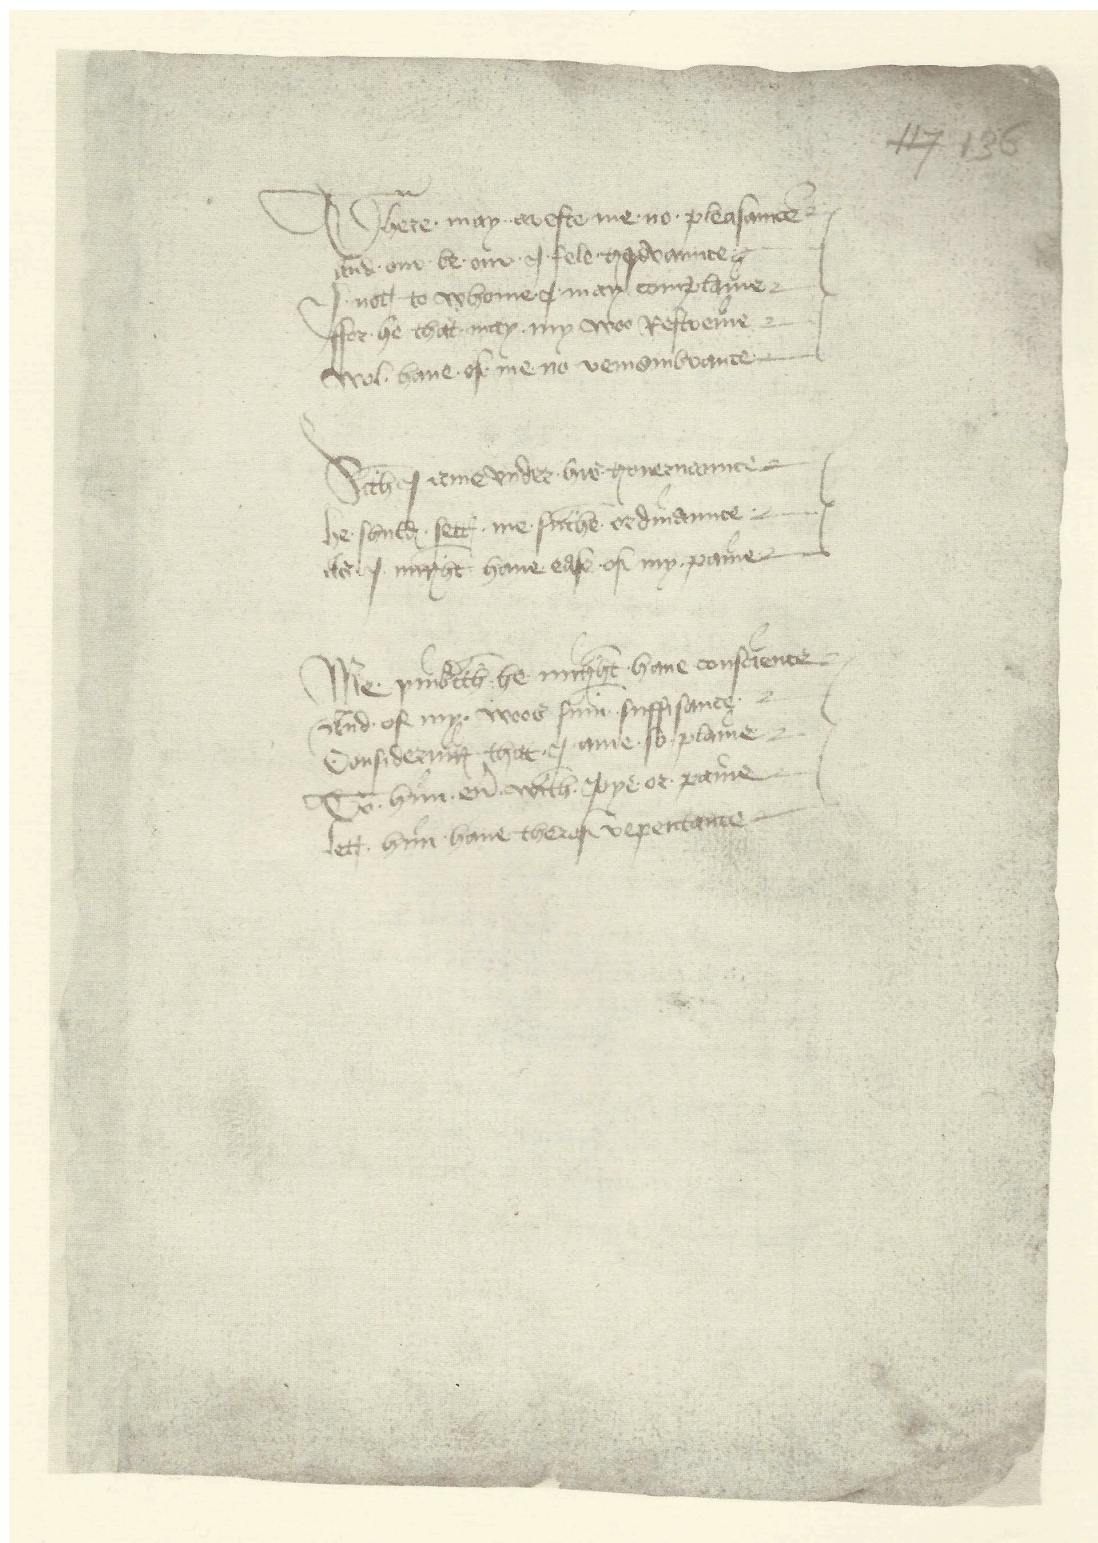 117 136
There · may · areste · me · no · pleasance
And · our · be · our · I · fele · grevaunce
I · not to whome I · may complaine
ffor · he that · may · my woo Restreine
Wol · haue · of · me · no remembrance
Sith I ame vnder · his · gouernaunce
he · shuld · sett · me suche ordinaunce
As · I · might haue ease · of my · paine
Me · he might · haue conscience
And · of my · woos sum · suffisance
Considering that · I · ame · so · plaine
To · him · with · Joye · or · paine
lett · him haue therof repentance